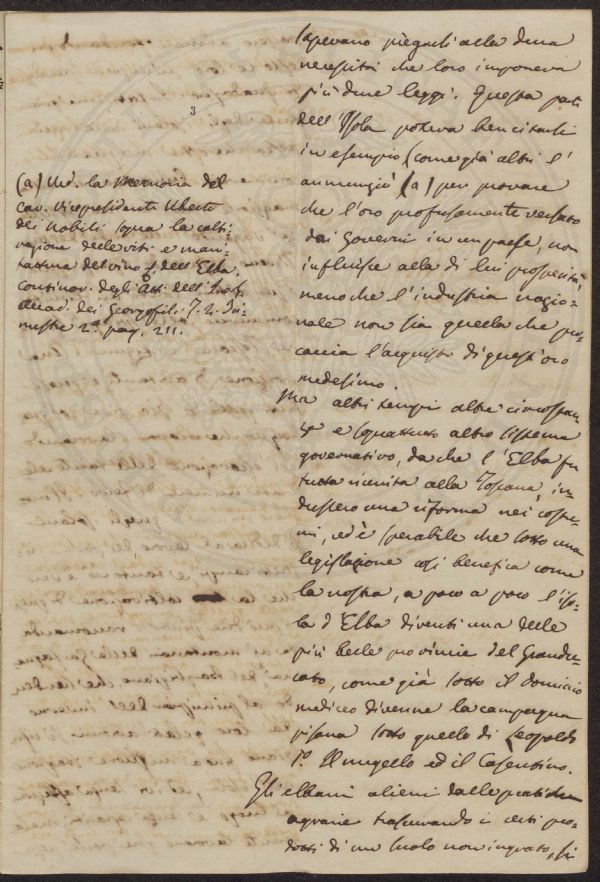 3
sapevano piegarsi alla dura
necessità che loro imponeva
più dure leggi. Questa parte
dell'Isola poteva ben citarsi
in esempio (come già altri l'
annunziò (a) per provare
che l'oro profusamente versato
dai Governi in un paese, non
influisce alla di lui prosperità,
meno che l'industria nazio-
nale non sia quella che pro-
caccia l'acquisto di quest'oro
medesimo.
Ma altri tempi altre circostan-
ze e soprattutto altro sistema
governativo, da che l'Elba fu
tutta riunita alla Toscana, in-
dussero una riforma nei costu-
mi, ed è sperabile che sotto una
legislazione così benefica come
la nostra, a poco a poco l'iso-
la d'Elba diventi una delle
più belle provincie del Grandu-
cato, come già sotto il dominio
mediceo divenne la campagna
pisana sotto quello di Leopoldo
I.° Il mugello ed il Casentino.
Gli elbani alieni dalle pratiche
agrarie trascurando i certi pro-
dotti di un suolo non ingrato, si
(a) Ved. la Memoria del
cav. Vicepresidente Uberto
dei Nobili sopra la colti-
vazione delle viti e mani-
fattura del vino dell'Elba.
continov. degli Atti dell'
Accad. dei Georgofili. T. 2. Tri-
mestre 2.° pag. 211.